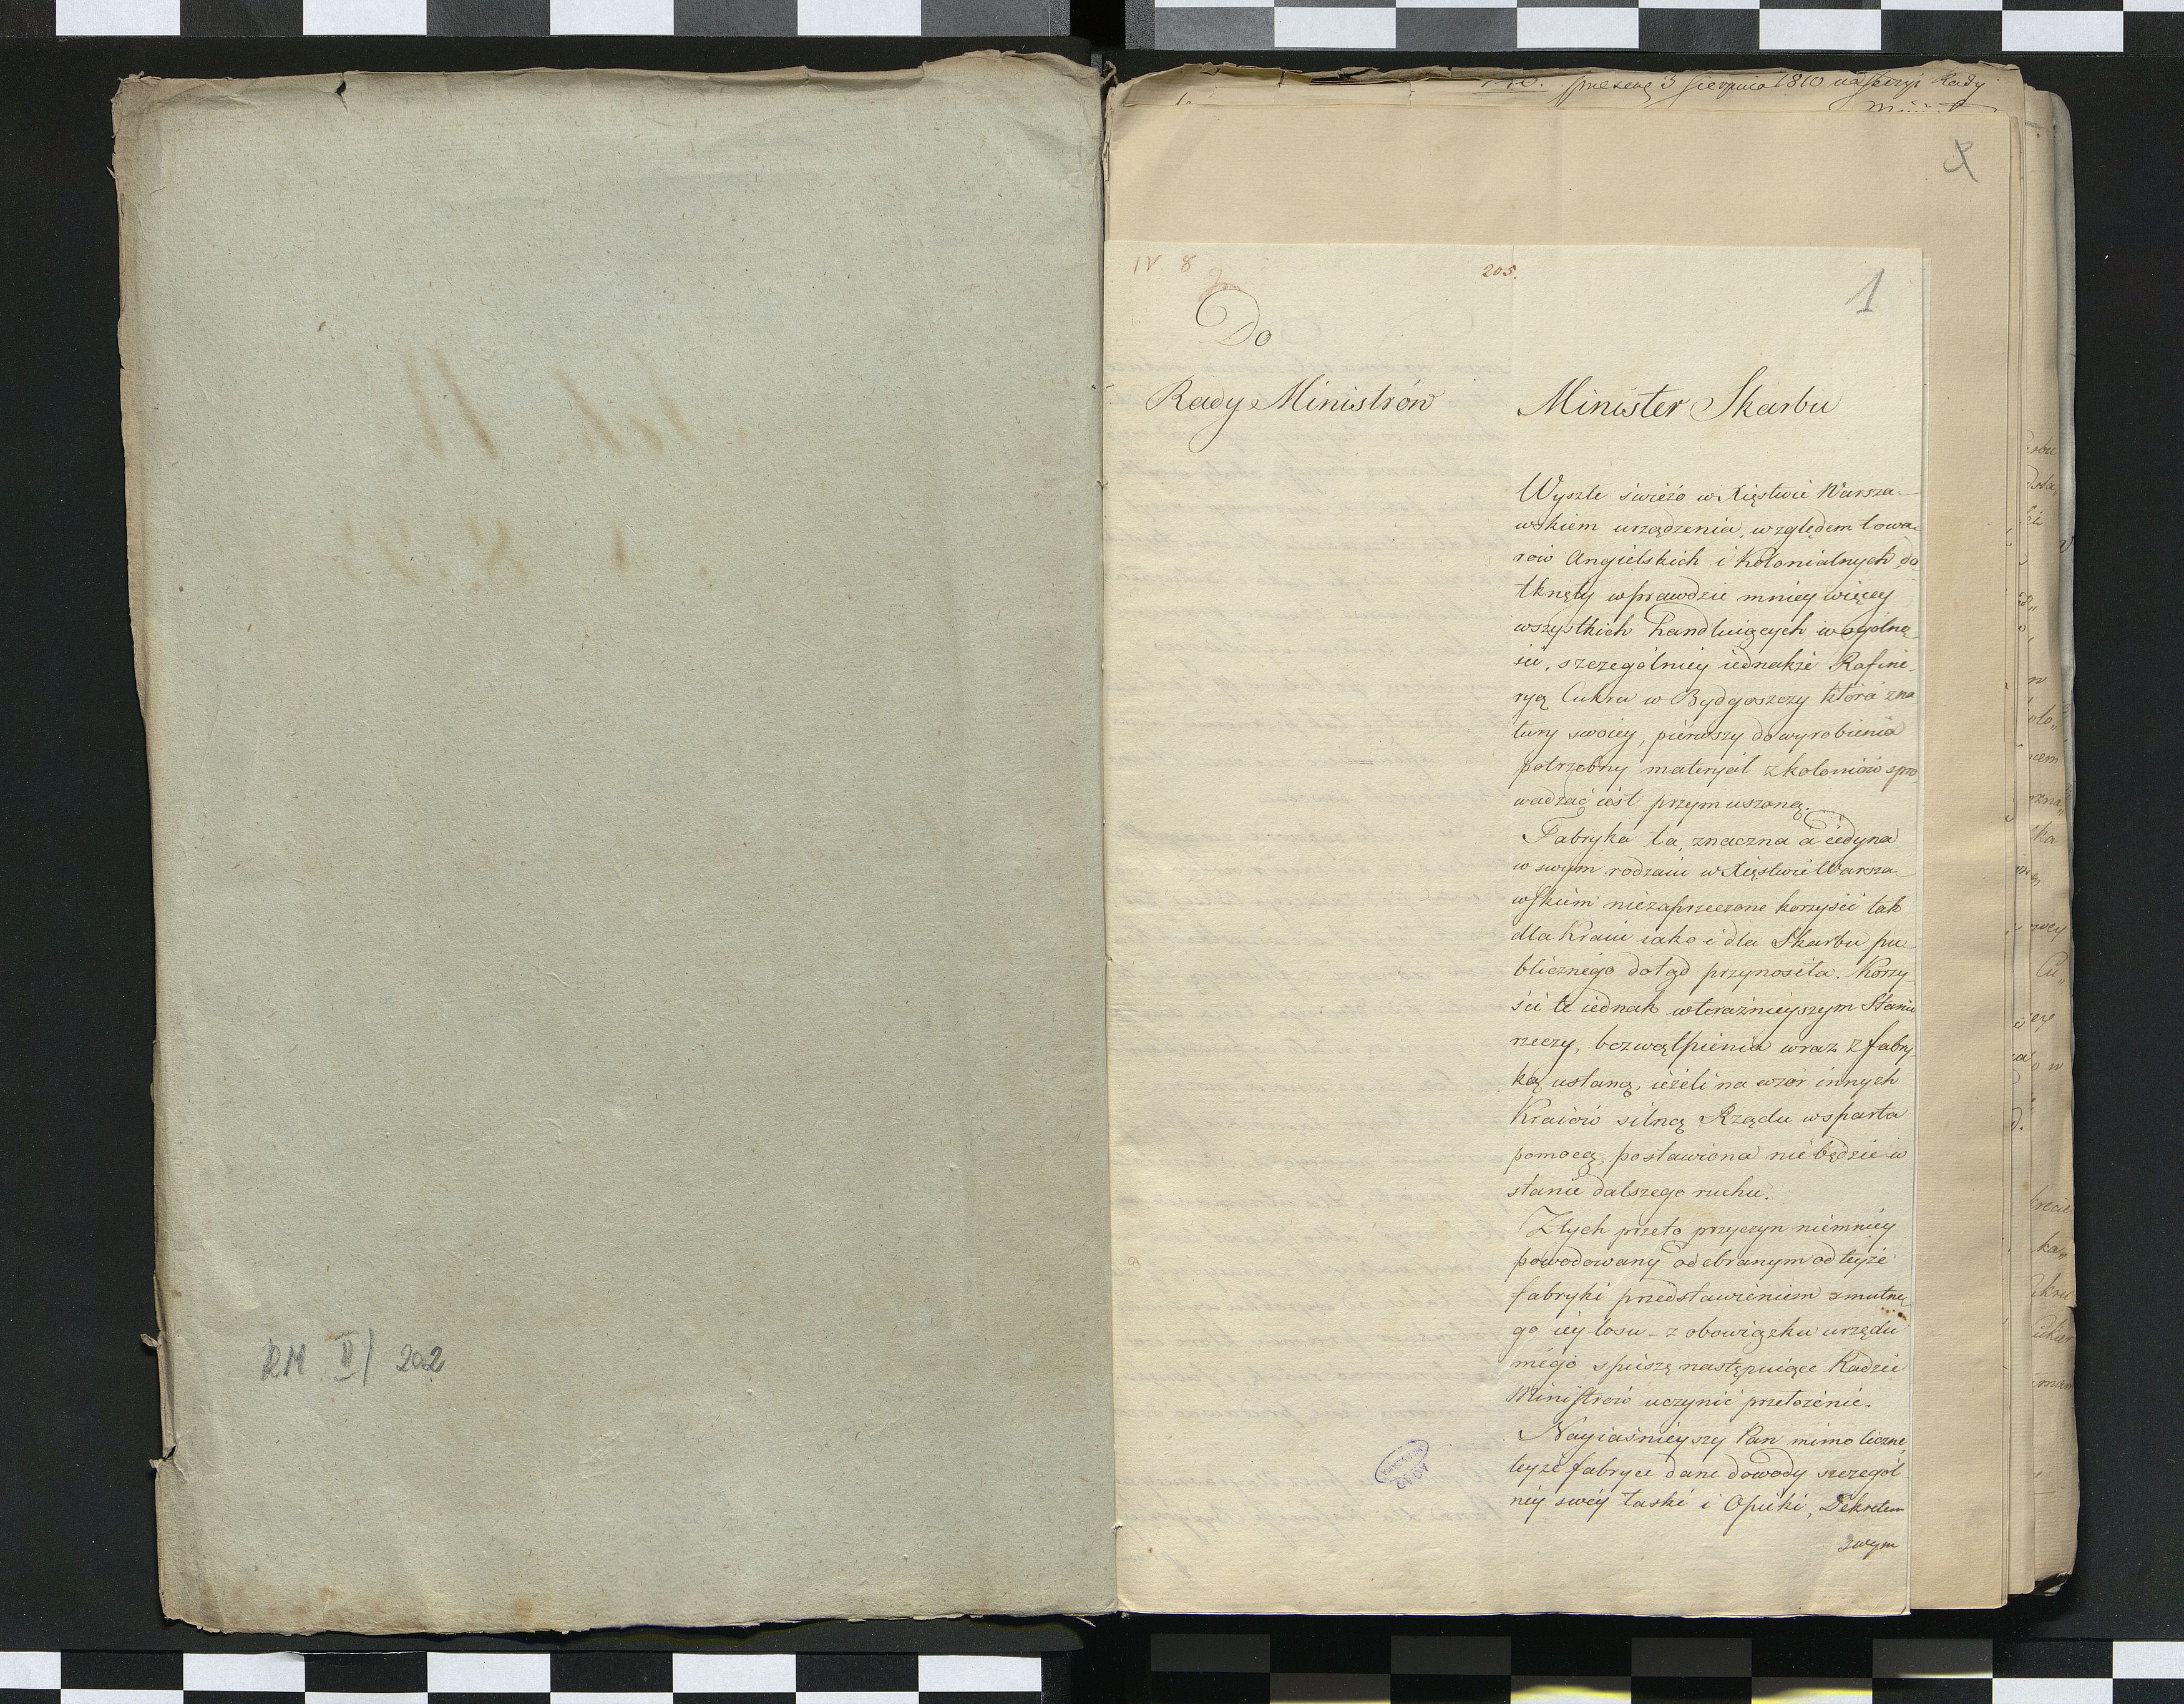 prezent. 3 Sierpnia 1810 na Sessyi Rady
X
IV 8
205.
1
Do
Rady Ministrów
Minister Skarbu
Wyszłe świéżo w Xięstwie Warsza-
wskiem urządzenia, względem towa-
rów Angielskich i Kolonialnych, do-
tknęły wprawdzie mniey więcey
wszystkich handluiących w ogólno-
ści, szczególniey iednakże Rafine-
ryą Cukru w Bydgoszczy która z na-
tury swoiéy, pierwszy do wyrobienia
potrzebny materyał z koloniów spro-
wadzać iest przymuszoną.
Fabryka ta, znaczna a iedyna
w swym rodzaiu w Xięstwie Warsza-
wskim niezaprzeczone korzyści tak
dla Kraiu iako i dla Skarbu pu-
blicznego dotąd przynosiła. Korzy-
ści te iednak w teraźnieyszym Stanie
rzeczy, bez wątpienia wraz z fabry-
ką ustaną, ieżeli na wzór innych
Kraiów silną Rządu wsparta
pomocą, postawiona nie będzie w
stanie dalszego ruchu.
Z tych przeto przyczyn niemniéy
powodowany odebranym od teyże
fabryki przedstawieniem smutne-
go iéy losu - z obowiązku urzędu
mégo spieszę następuiące Radzie
Ministrów uczynić przełożenie.
Nayiaśnieyszy Pan mimo liczne
teyże fabryce dane dowody szczegól-
néy swéy łaski i Opieki, Dekretem
swym
RM II/ 202